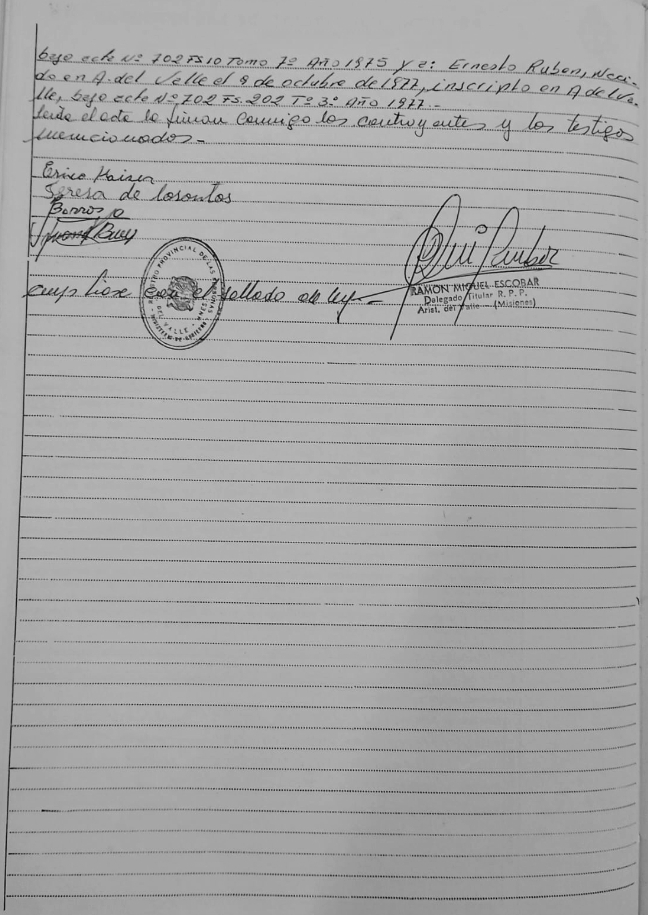 bajo acta Nº 702 FS 10 Tomo 7º Año 1975 y a: Ernesto Ruben, Naci-
do en A. del Valle el 8 de octubre de 1977, inscripto en A del Va-
lle, bajo acta Nº 702 FS. 202 Tº 3º Año 1977.-
leida el acta la firman conmigo los contrayentes y los testigos
mencionados.-
Erico Kaiser
Teresa de losantos
Barros
cumplise con el sellado de ley-
REGISTRO PROVINCIAL DE LAS PERSONAS
DEL VALLE
RAMON MIGUEL ESCOBAR
Delegado Titular R. P. P.
Arist. del Valle (Misiones)